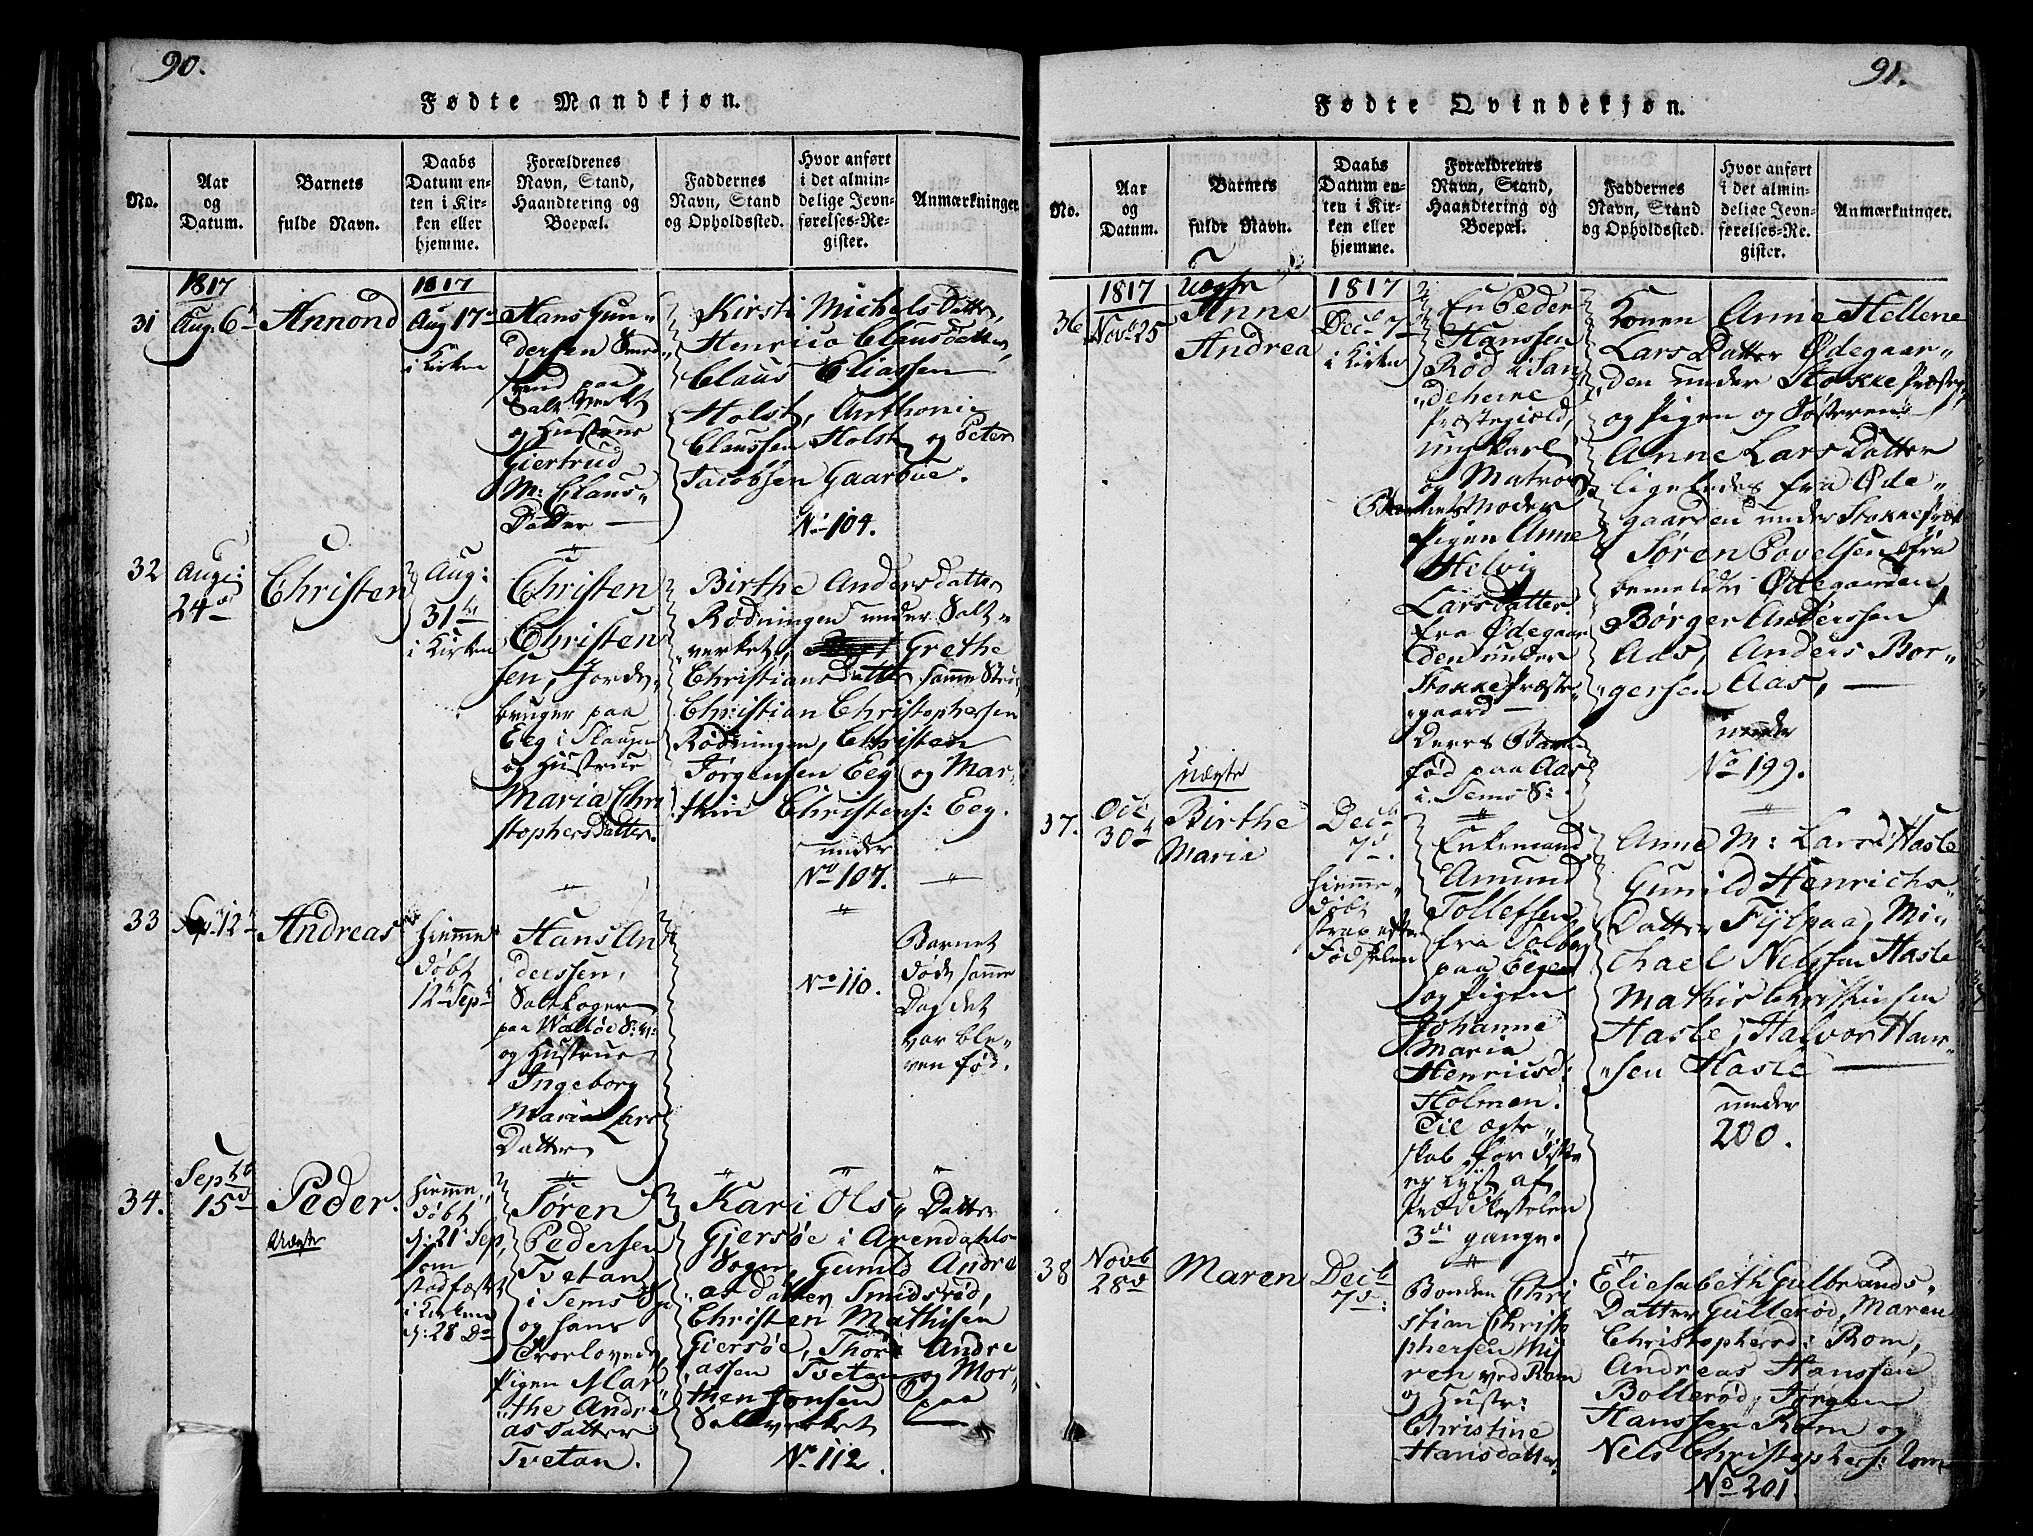 90.
Fødte Mandkjøn.
No.
Aar
og
Datum.
Barnets
fulde Navn.
Daabs
Datum en-
ten i Kir-
ken eller
hjemme.
Forældrenes
Navn, Stand,
Haandtering og
Boepæl.
Faddernes
Navn, Stand
og Opholdssted.
Hvor anført
i det almin-
delige Jevn-
førelses-Re-
gister.
Anmærkninger
31
1817
Aug. 6t
Annond
1817
Aug 17de
i Kirken
Hans Gun-
dersen
paa
og Hustrue
Giertrud
M: Claus-
Datter
Kirsti Michels Datter,
Henrica Clausdatter,
Claus Eliassen
Holst, Anthoni
Claussen Holst og Peter
Jacobsen Gaarboe.
No 104.
32
Aug:
24de
Christen
Aug:
31te
i Kirken
Christen
Christen
sen, Jord-
bruger paa
Eeg i Slaugen
og Hustrue
Maria Chri
stophersdatter.
Birthe Andersdatter
Rødningen under Salt-
verket, Grethe
Christiansdatter samme Sted,
Christian Christophersen
Rødningen, Christen
Jørgensen Eeg og Mar-
thin Christens: Eeg.
under
No 107.
33
Sep. 12te
Andreas
hiemme
døbt
12te Sept
Hans An
derssen,
Saltkoger
paa Walløe S: v:
og Hustrue
Ingeborg
Maria Lars
Datter
No 110.
Barnet
døde samme
Dag det
var ble-
ven fød.
34.
Septb
15de
Peder.
Uægte
hiemme-
døbt
d: 21 Sep,
om
stadfæstet
i Kirken
d: 28 Do
Søren
Pedersen
Tvetan
i Sems S
og hans
Trorlovede
Pigen Mar-
the Andre
asdatter
Tvetan.
Kari Ols- Datter
Gjersøe i Arendahls
Sogn, Gunild Andre
asdatter Smidsrød,
Christen Mathisen
Giersøe, Thor Andre
assen Tvetan og Mor-
then Jonsen paa
Saltverket
No 112.
91.
Fødte Qvindekjøn.
No.
Aar
og
Datum.
Barnets
fulde Navn.
Daabs
Datum en-
ten i Kir-
ken eller
hjemme.
Forældrenes
Navn, Stand,
Haandtering og
Boepæl.
Faddernes
Navn, Stand
og Opholdssted.
Hvor anført
i det almin-
delige Jevn-
førelses-Re-
gister.
Anmærkninger.
36
1817
Novb 25
Uægte
Anne
Andrea
1817
Decb 7de
i Kirken
Peder
Hanssen
Rød i San
deherne
Præstegield,
ungkarl
og Matros
Barnets Moder
Pigen Anne
Helvig
Larsdatter
fra Ødegaar
den under
Stokke Præste-
gaard
Deres Barn
fød paa Aas
i Sems S:
Konen Anne Hellene
Lars Datter Ødegaar-
den under Stokke Præsteg
og Pigen og Søsteren
Anne Lars Datter
ligeledes fra Øde-
gaarden under Stokke Præst
Søren Povelsen fra
bemeldte Ødegaarden,
Børger Anderssen
Aas, Anders Bor-
gersen Aas,
under
No 199.
37.
Octb
30te
Uægte
Birthe
Maria
Decb
7de
hiemme-
døbt
strax efter
Fødselen
Enkemand
Amund
Tollefsen
fra Solberg
paa Eegen
og Pigen
Johanne
Maria
Henricsd:
Holmen.
Til ægte-
skab for disse
er lyst af
Prædikestolen
3de gange.
Anne M: Larsd: Hasle
Gunild Henrichs-
Datter Fylpaa, Mi-
chael Nelssen Hasle
Mathis Christensen
Hasle, Halvor Han-
sen Hasle
under
200.
38
Novb
28de
Maren
Decb
7de:
Bonden Chri
stian Christo
phersen
ved Rom
og Hustr:
Christine
Hansdatter.
Eliesabeth Gulbrands-
Datter Gullerød, Maren
Christophersd: Rom,
Andreas Hanssen
Bollerød, Jørgen
Hanssen Rom og
Nels Christophers: Rom
No 201.